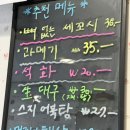 *추천 메뉴*
• 뼈 없는 세꼬시 36.-
• 과메기 ₩ 35.-
• 석화 ₩ 20.-
• 生 대구
• 스지 어묵탕 ₩22.-